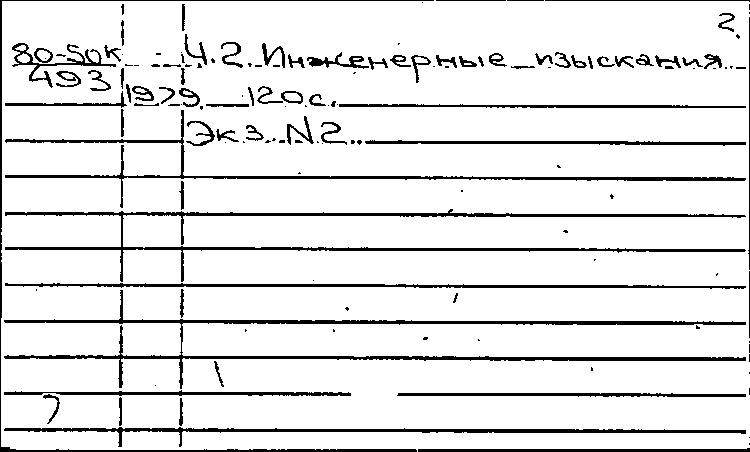 2.
80-50к Ч.2. Инженерные изыскания.
493
1979. 120 с.
Экз. N2